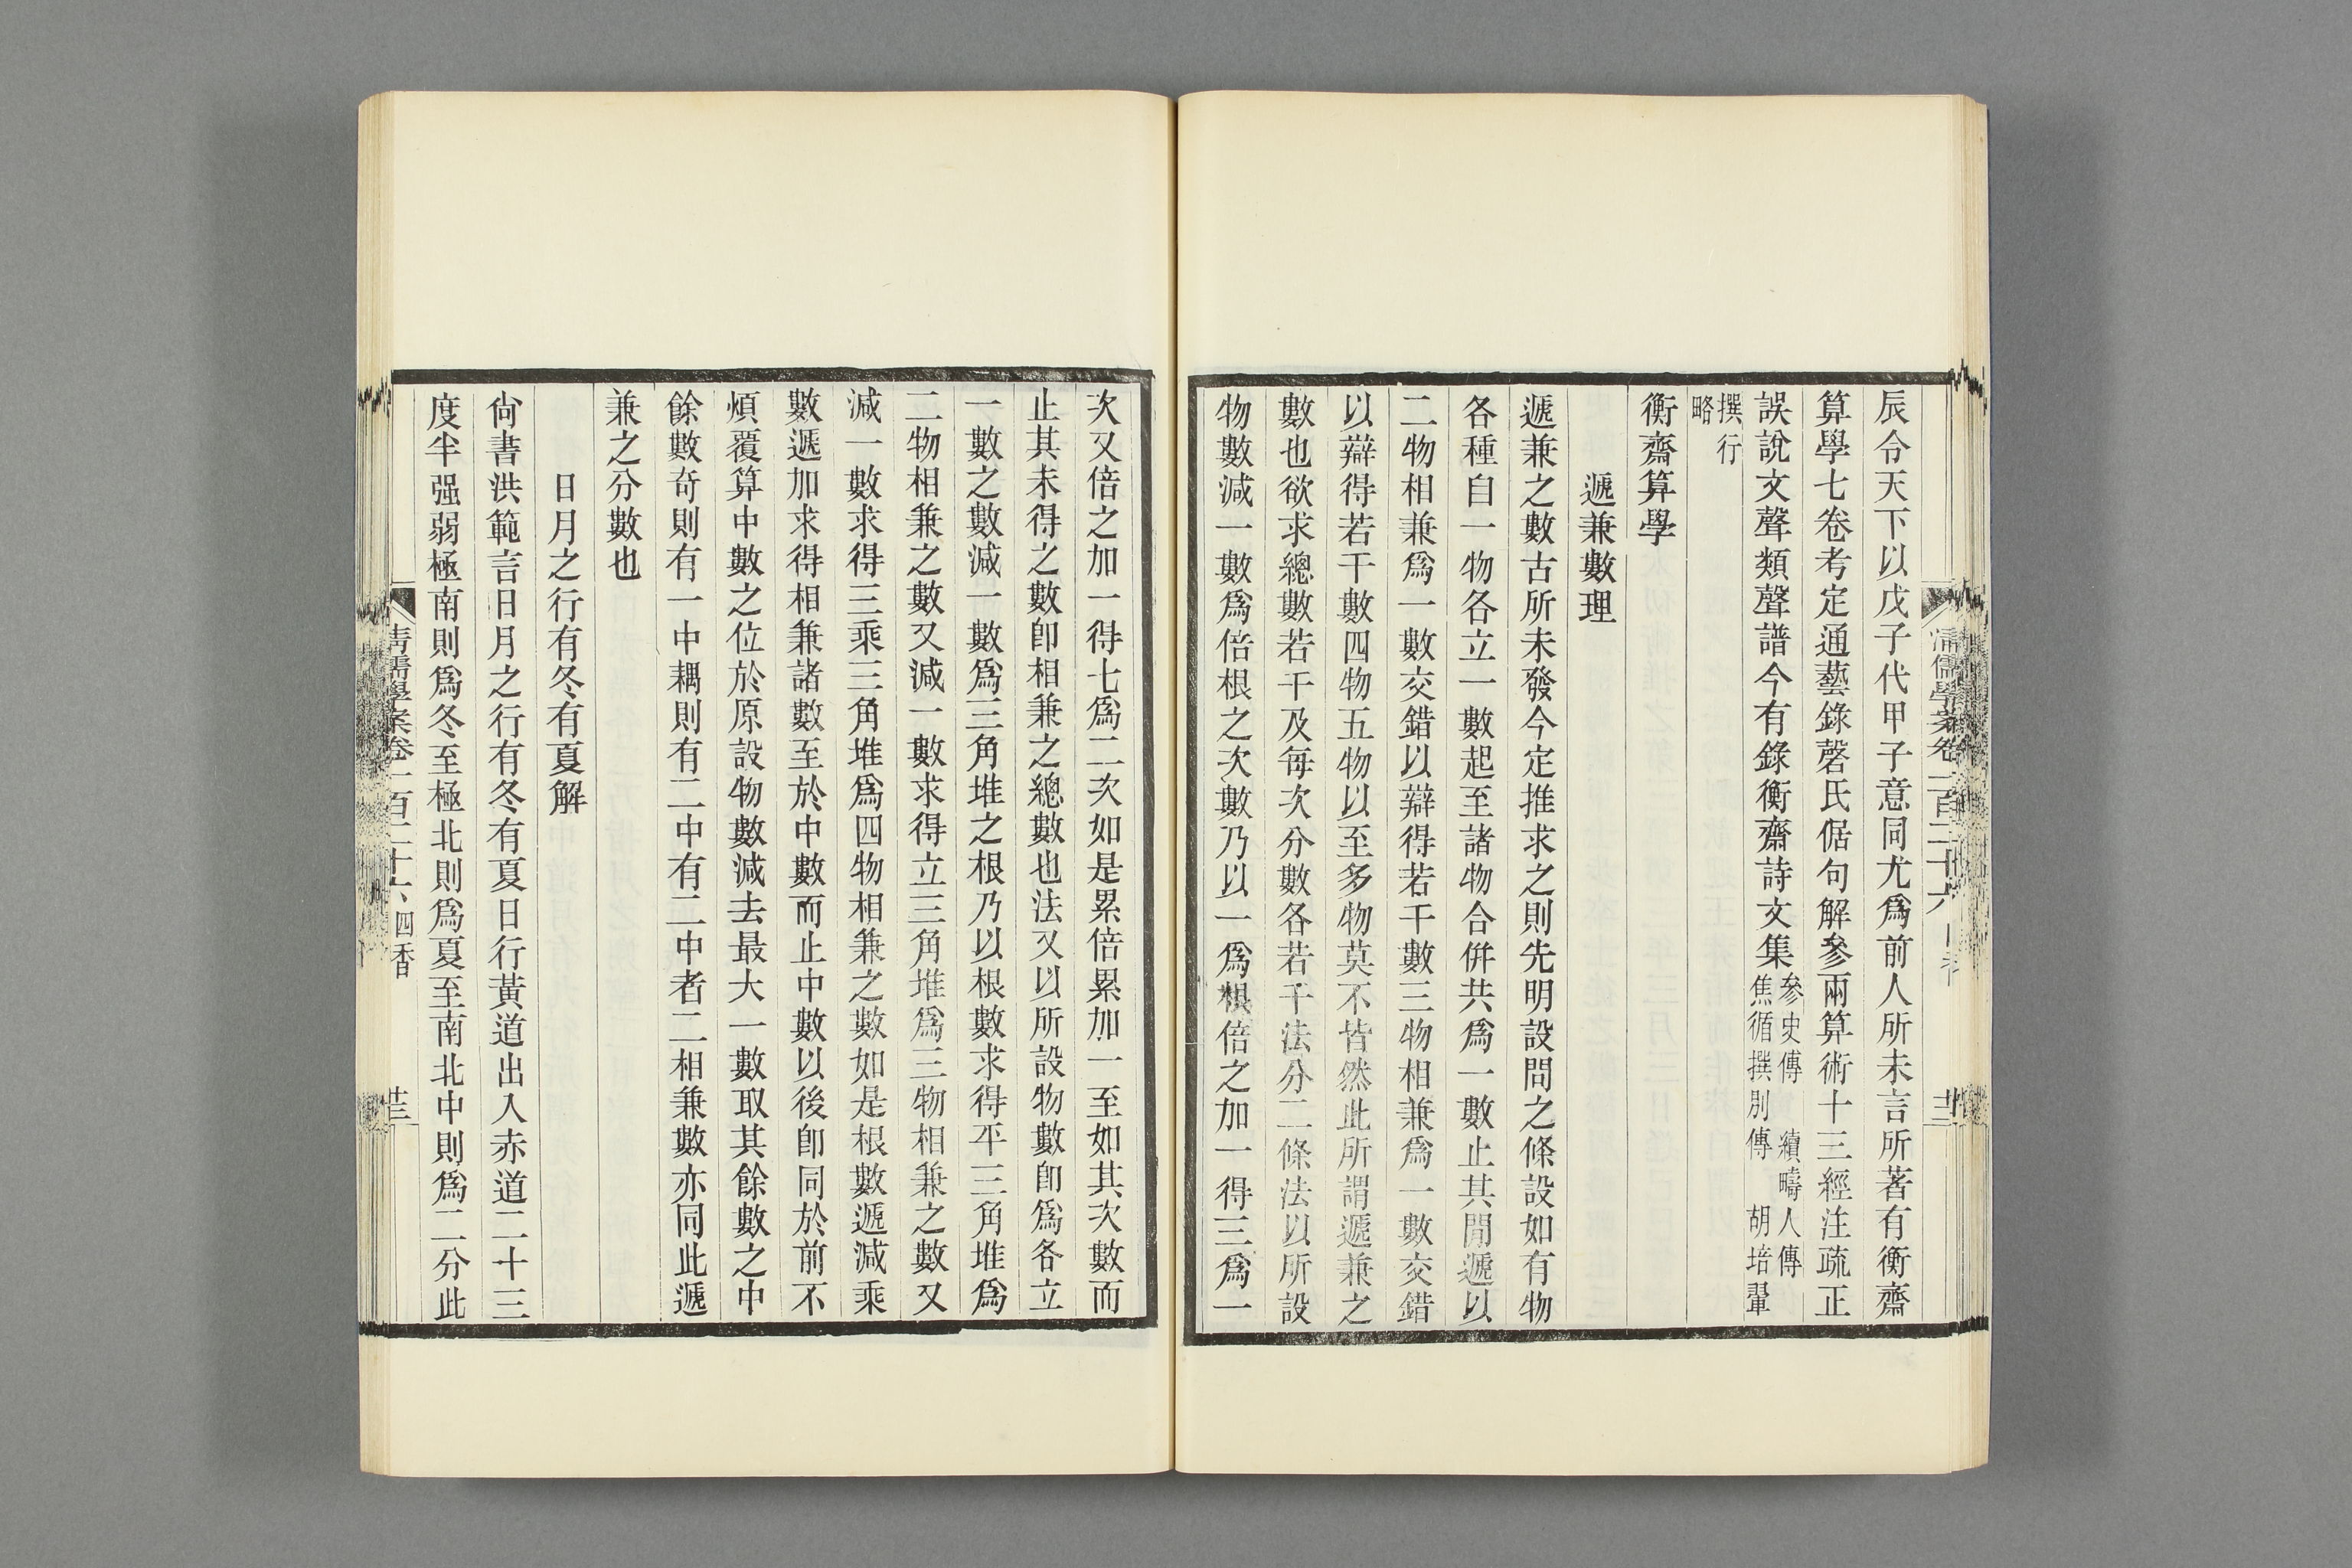 辰令天下以戊子代甲子意同尤爲前人所未言所著有衡齋
算學七卷考定通藝錄磬氏倨句解參兩算術十三經注疏正
誤說文聲類聲譜今有錄衡齋詩文集參史傳 續疇人傳
焦循撰別傳 胡培翬
撰行
略
衡齋算學
遞兼數理
遞兼之數古所未發今定推求之則先明設問之條設如有物
各種自一物各立一數起至諸物合併共爲一數止其閒遞以
二物相兼爲一數交錯以辯得若干數三物相兼爲一數交錯
以辯得若干數四物五物以至多物莫不皆然此所謂遞兼之
數也欲求總數若干及每次分數各若干法分二條法以所設
物數減一數爲倍根之次數乃以一爲根倍之加一得三爲一
次又倍之加一得七爲二次如是累倍累加一至如其次數而
止其未得之數卽相兼之總數也法又以所設物數卽爲各立
一數之數減一數爲三角堆之根乃以根數求得平三角堆爲
二物相兼之數又減一數求得立三角堆爲三物相兼之數又
減一數求得三乘三角堆爲四物相兼之數如是根數遞減乘
數遞加求得相兼諸數至於中數而止中數以後卽同於前不
煩覆算中數之位於原設物數減去最大一數取其餘數之中
餘數奇則有一中耦則有二中有二中者二相兼數亦同此遞
兼之分數也
日月之行有冬有夏解
尙書洪範言日月之行有冬有夏日行黃道出入赤道二十三
度半强弱極南則爲冬至極北則爲夏至南北中則爲二分此
清儒學案卷一百二十六 四香
廿三